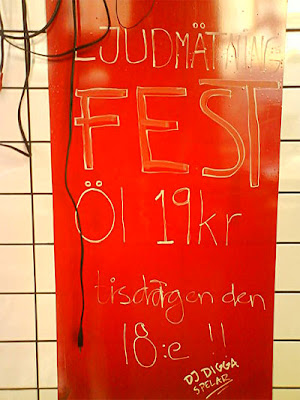 LJUDMÄTNING
FEST
Öl 19kr
tisdagen den
18:e !!
DJ DIGGA
SPELAR